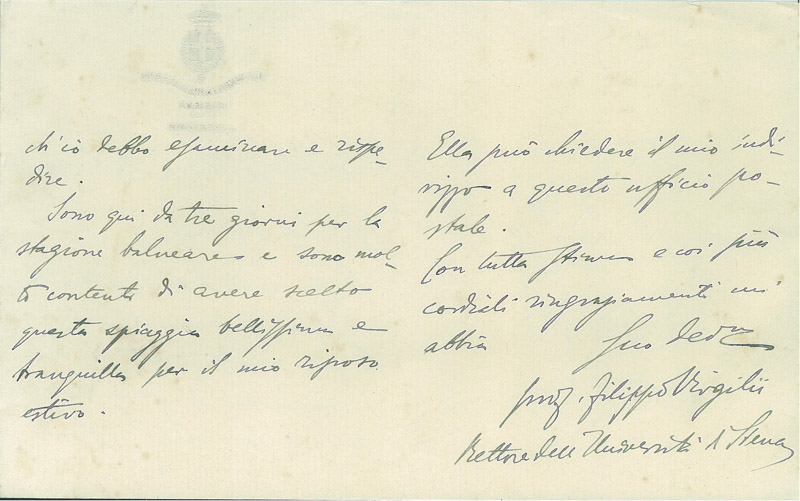 ch'io debbo esaminare e rispe-
dire.
Sono qui da tre giorni per la
stagione balneare e sono mol-
to contento di avere scelto
questa spiaggia bellissima e
tranquilla per il mio riposo
estivo.
Ella può chiedere il mio indi-
rizzo a questo ufficio po-
stale.
Con tutta stima e coi più
cordiali ringraziamenti mi
abbia
Suo dedmo
prof. Filippo Virgilii
Rettore dell'Università di Siena